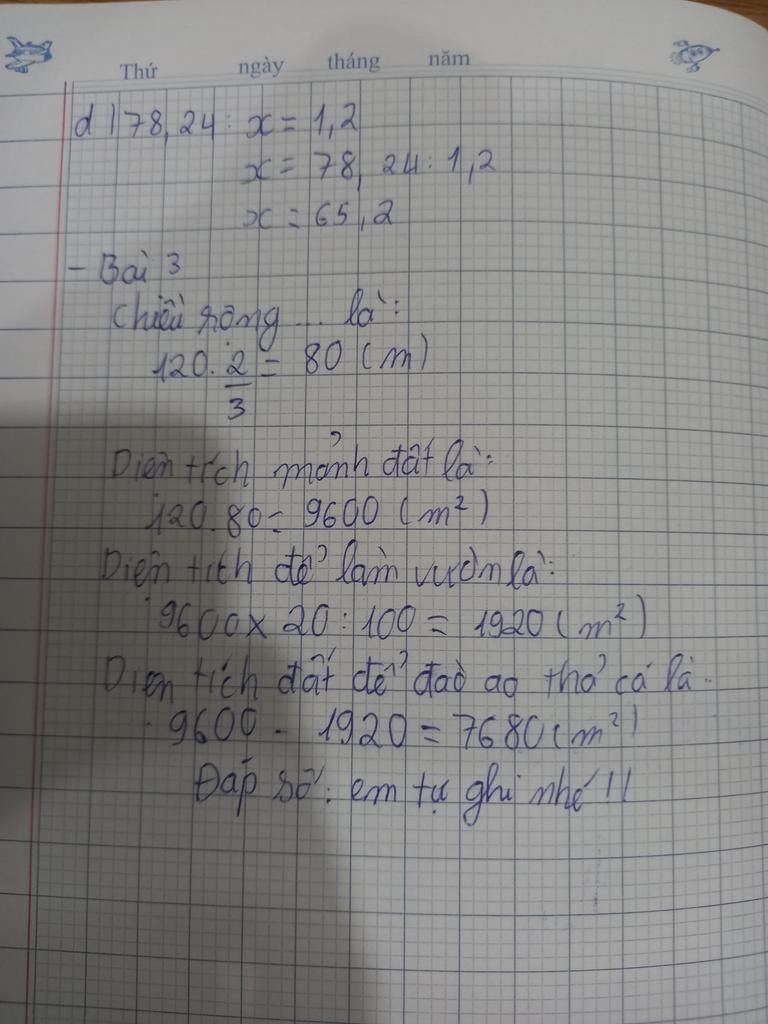 Thứ ngày tháng năm
d) 78,24 : x = 1,2
x = 78,24 : 1,2
x = 65,2
- Bài 3
Chiều rộng ... là:
120 . 2/3 = 80 (m)
Diện tích mảnh đất là:
120 . 80 = 9600 (m²)
Diện tích để làm vườn là:
9600 x 20 : 100 = 1920 (m²)
Diện tích đất để đào ao thả cá là.
9600 - 1920 = 7680 (m²)
Đáp số: em tự ghi nhé !!